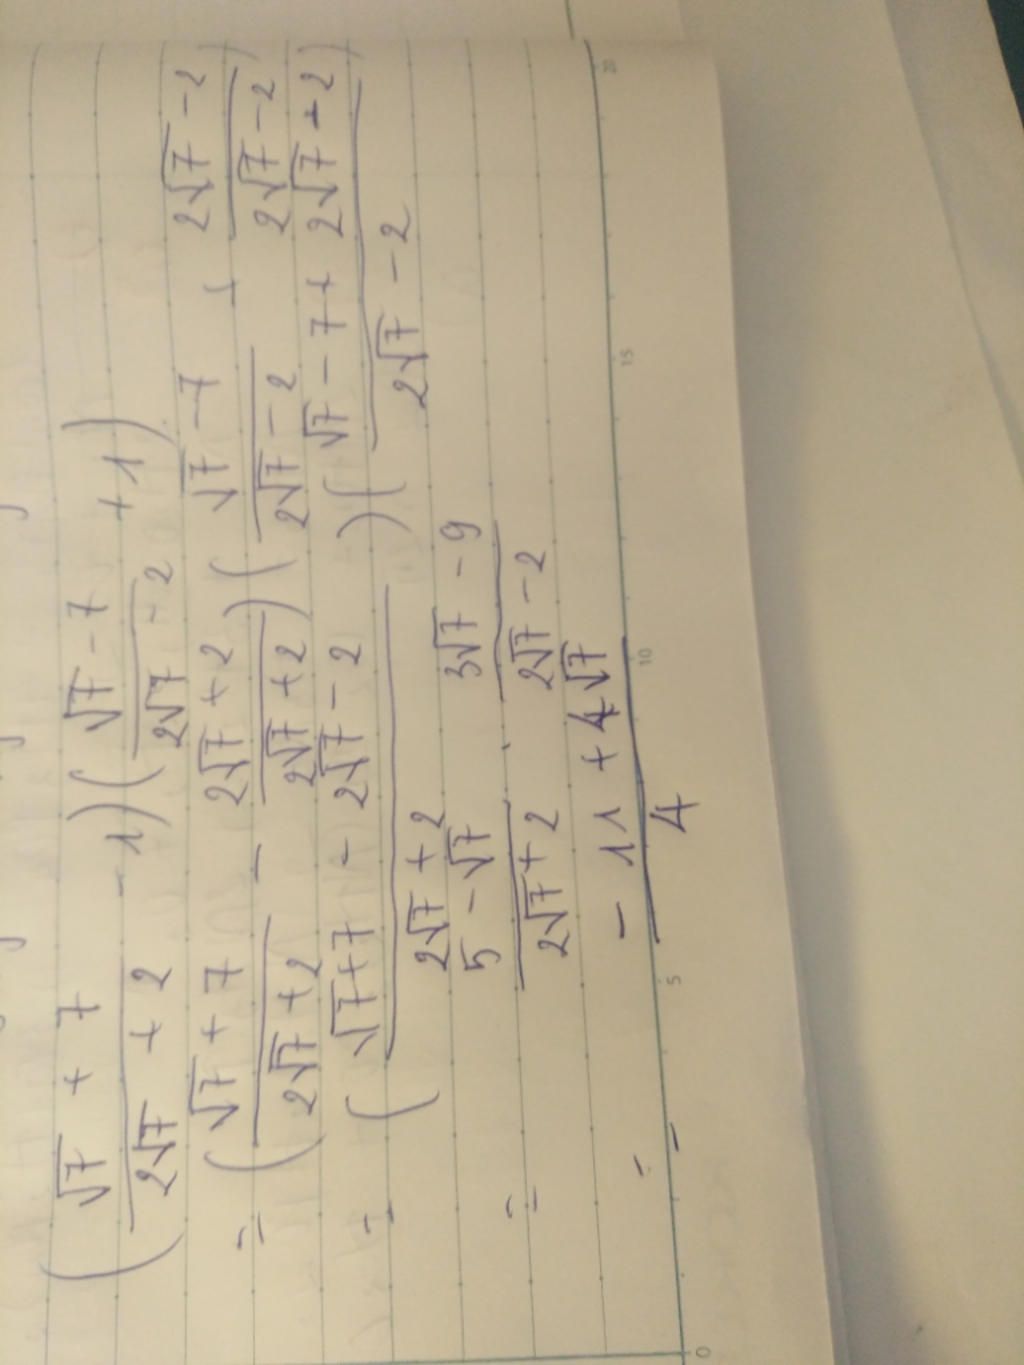 (√7 + 7 / 2√7 + 2 - 1)(√7 - 7 / 2√7 - 2 + 1)
= (√7 + 7 / 2√7 + 2 - 2√7 + 2 / 2√7 + 2)(√7 - 7 / 2√7 - 2 + 2√7 - 2 / 2√7 - 2)
= (√7 + 7 - 2√7 - 2 / 2√7 + 2)(√7 - 7 + 2√7 - 2 / 2√7 - 2)
= 5 - √7 / 2√7 + 2 · 3√7 - 9 / 2√7 - 2
= - 11 + 4√7 / 4
0 5 10 15 20